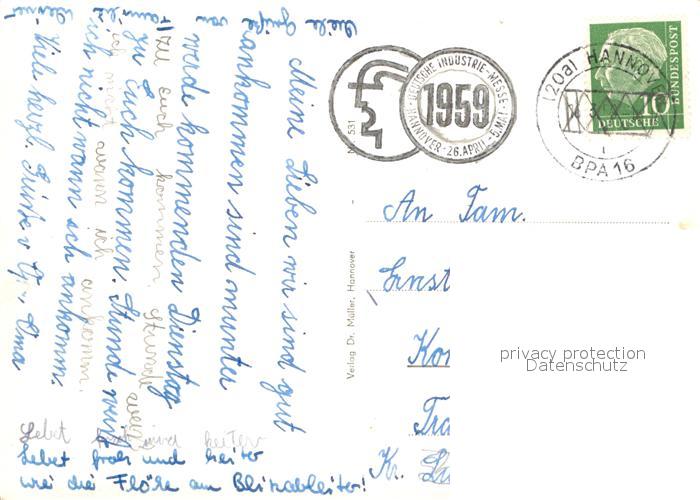 Meine Lieben wir sind gut
ankommen sind munter
werde kommenden Dienstag
zu Euch kommen. Stunde weiß
ich nicht wann ich ankomm.
Viel herzl. Grüße v Gr. Oma
Viele Grüße von
zu Euch kommen. Stunde weiß
ich nicht wann ich ankomm.
Lebet froh und heiter
Lebet froh und heiter
wie die Flöhe am Blitzableiter!
531
DEUTSCHE INDUSTRIE-MESSE
1959
HANNOVER · 26. APRIL - 5. MAI
(20a) HANNOVER
BPA 16
10
DEUTSCHE
BUNDESPOST
Verlag Dr. Müller, Hannover
An Fam.
Ernst
Kr.
privacy protection
Datenschutz